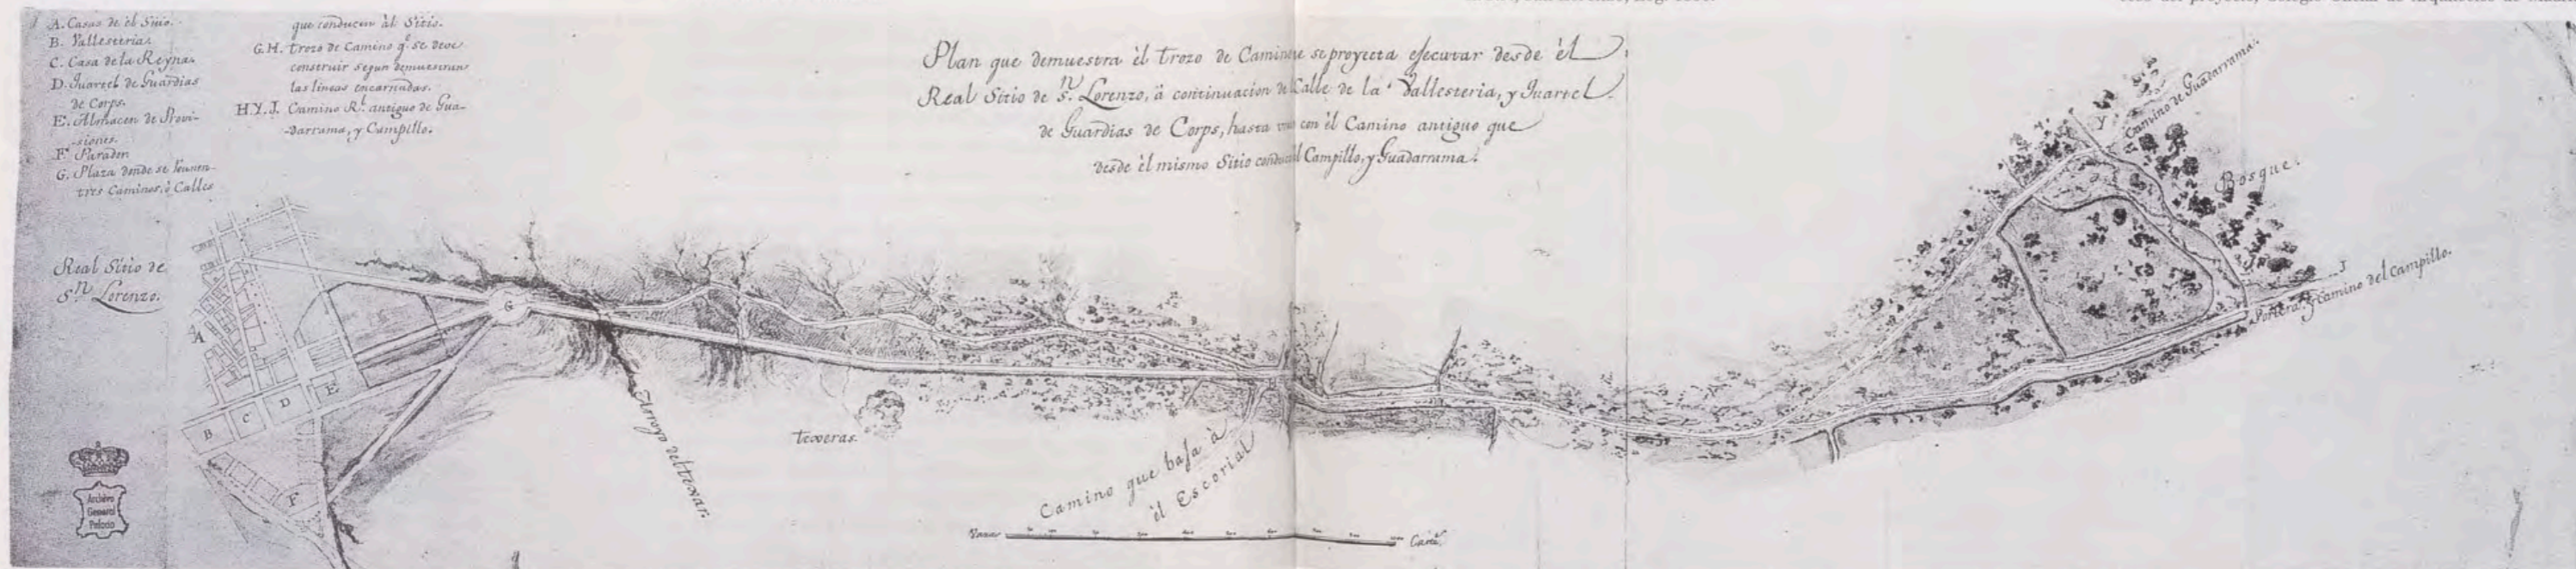 A. Casas de èl Sitio.
B. Vallesteria.
C. Casa de la Reyna.
D. Quartel de Guardias
de Corps.
E. Almacen de Provi-
-siones.
F Parador
G. Plaza donde se reunen
tres Caminos, ò Calles
que conducen àl Sitio.
G.H. trozo de Camino q.e se deve
construir segun demuestran
las lineas encarnadas.
H.Y.J. Camino R.l antiguo de Gua-
-darrama, y Campillo.
Plan que demuestra èl trozo de Camino que se proyecta esecutar desde èl
Real Sitio de S.n Lorenzo, à continuacion de Calle de la Vallesteria, y Quartel
de Guardias de Corps, hasta con èl Camino antiguo que
desde èl mismo Sitio conduce Campillo, y Guadarrama.
Real Sitio de
S.n Lorenzo.
A
B
C
D
E
F
G
Arroyo del texar.
texeras.
Camino que baja à
èl Escorial
H
Y
Camino de Guadarrama.
Bosque.
J
Portera, y Camino del Campillo.
Varas
Cast.s
Archivo
General
Palacio